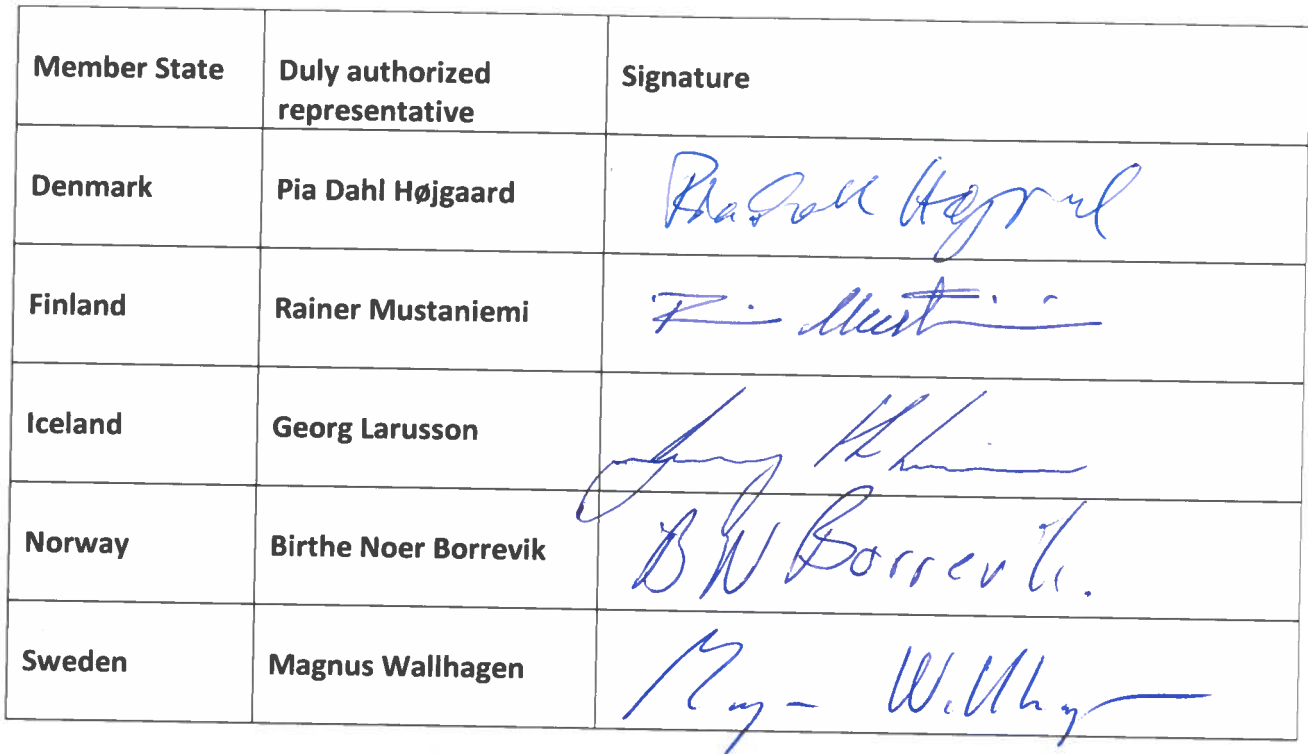 Member State
Duly authorized
representative
Signature
Denmark
Pia Dahl Højgaard
Finland
Rainer Mustaniemi
Iceland
Georg Larusson
Norway
Birthe Noer Borrevik
BN Borrevik.
Sweden
Magnus Wallhagen